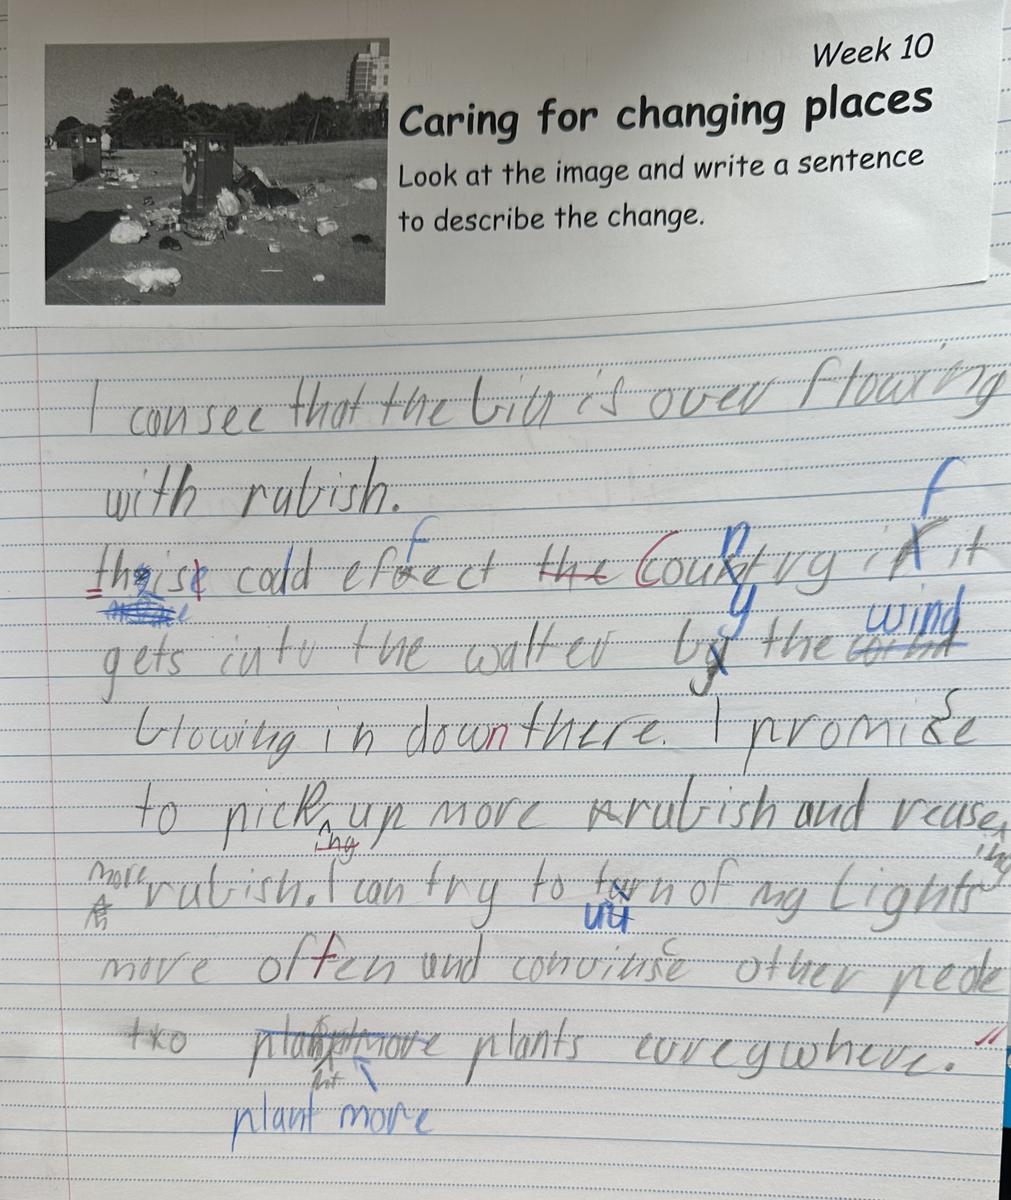 Week 10
Caring for changing places
Look at the image and write a sentence
to describe the change.
I can see that the bin is over flowing
with rubish.
f
f n
this could effect the Country if it
y wind
gets into the watter by the
blowing in down there. I promise
to pick up more rubish and reuse
ing ing
more rubish. I can try to turn of my Lights
uu
c
more often and convinse other peole
too plant more plants evreywhere.
plant more